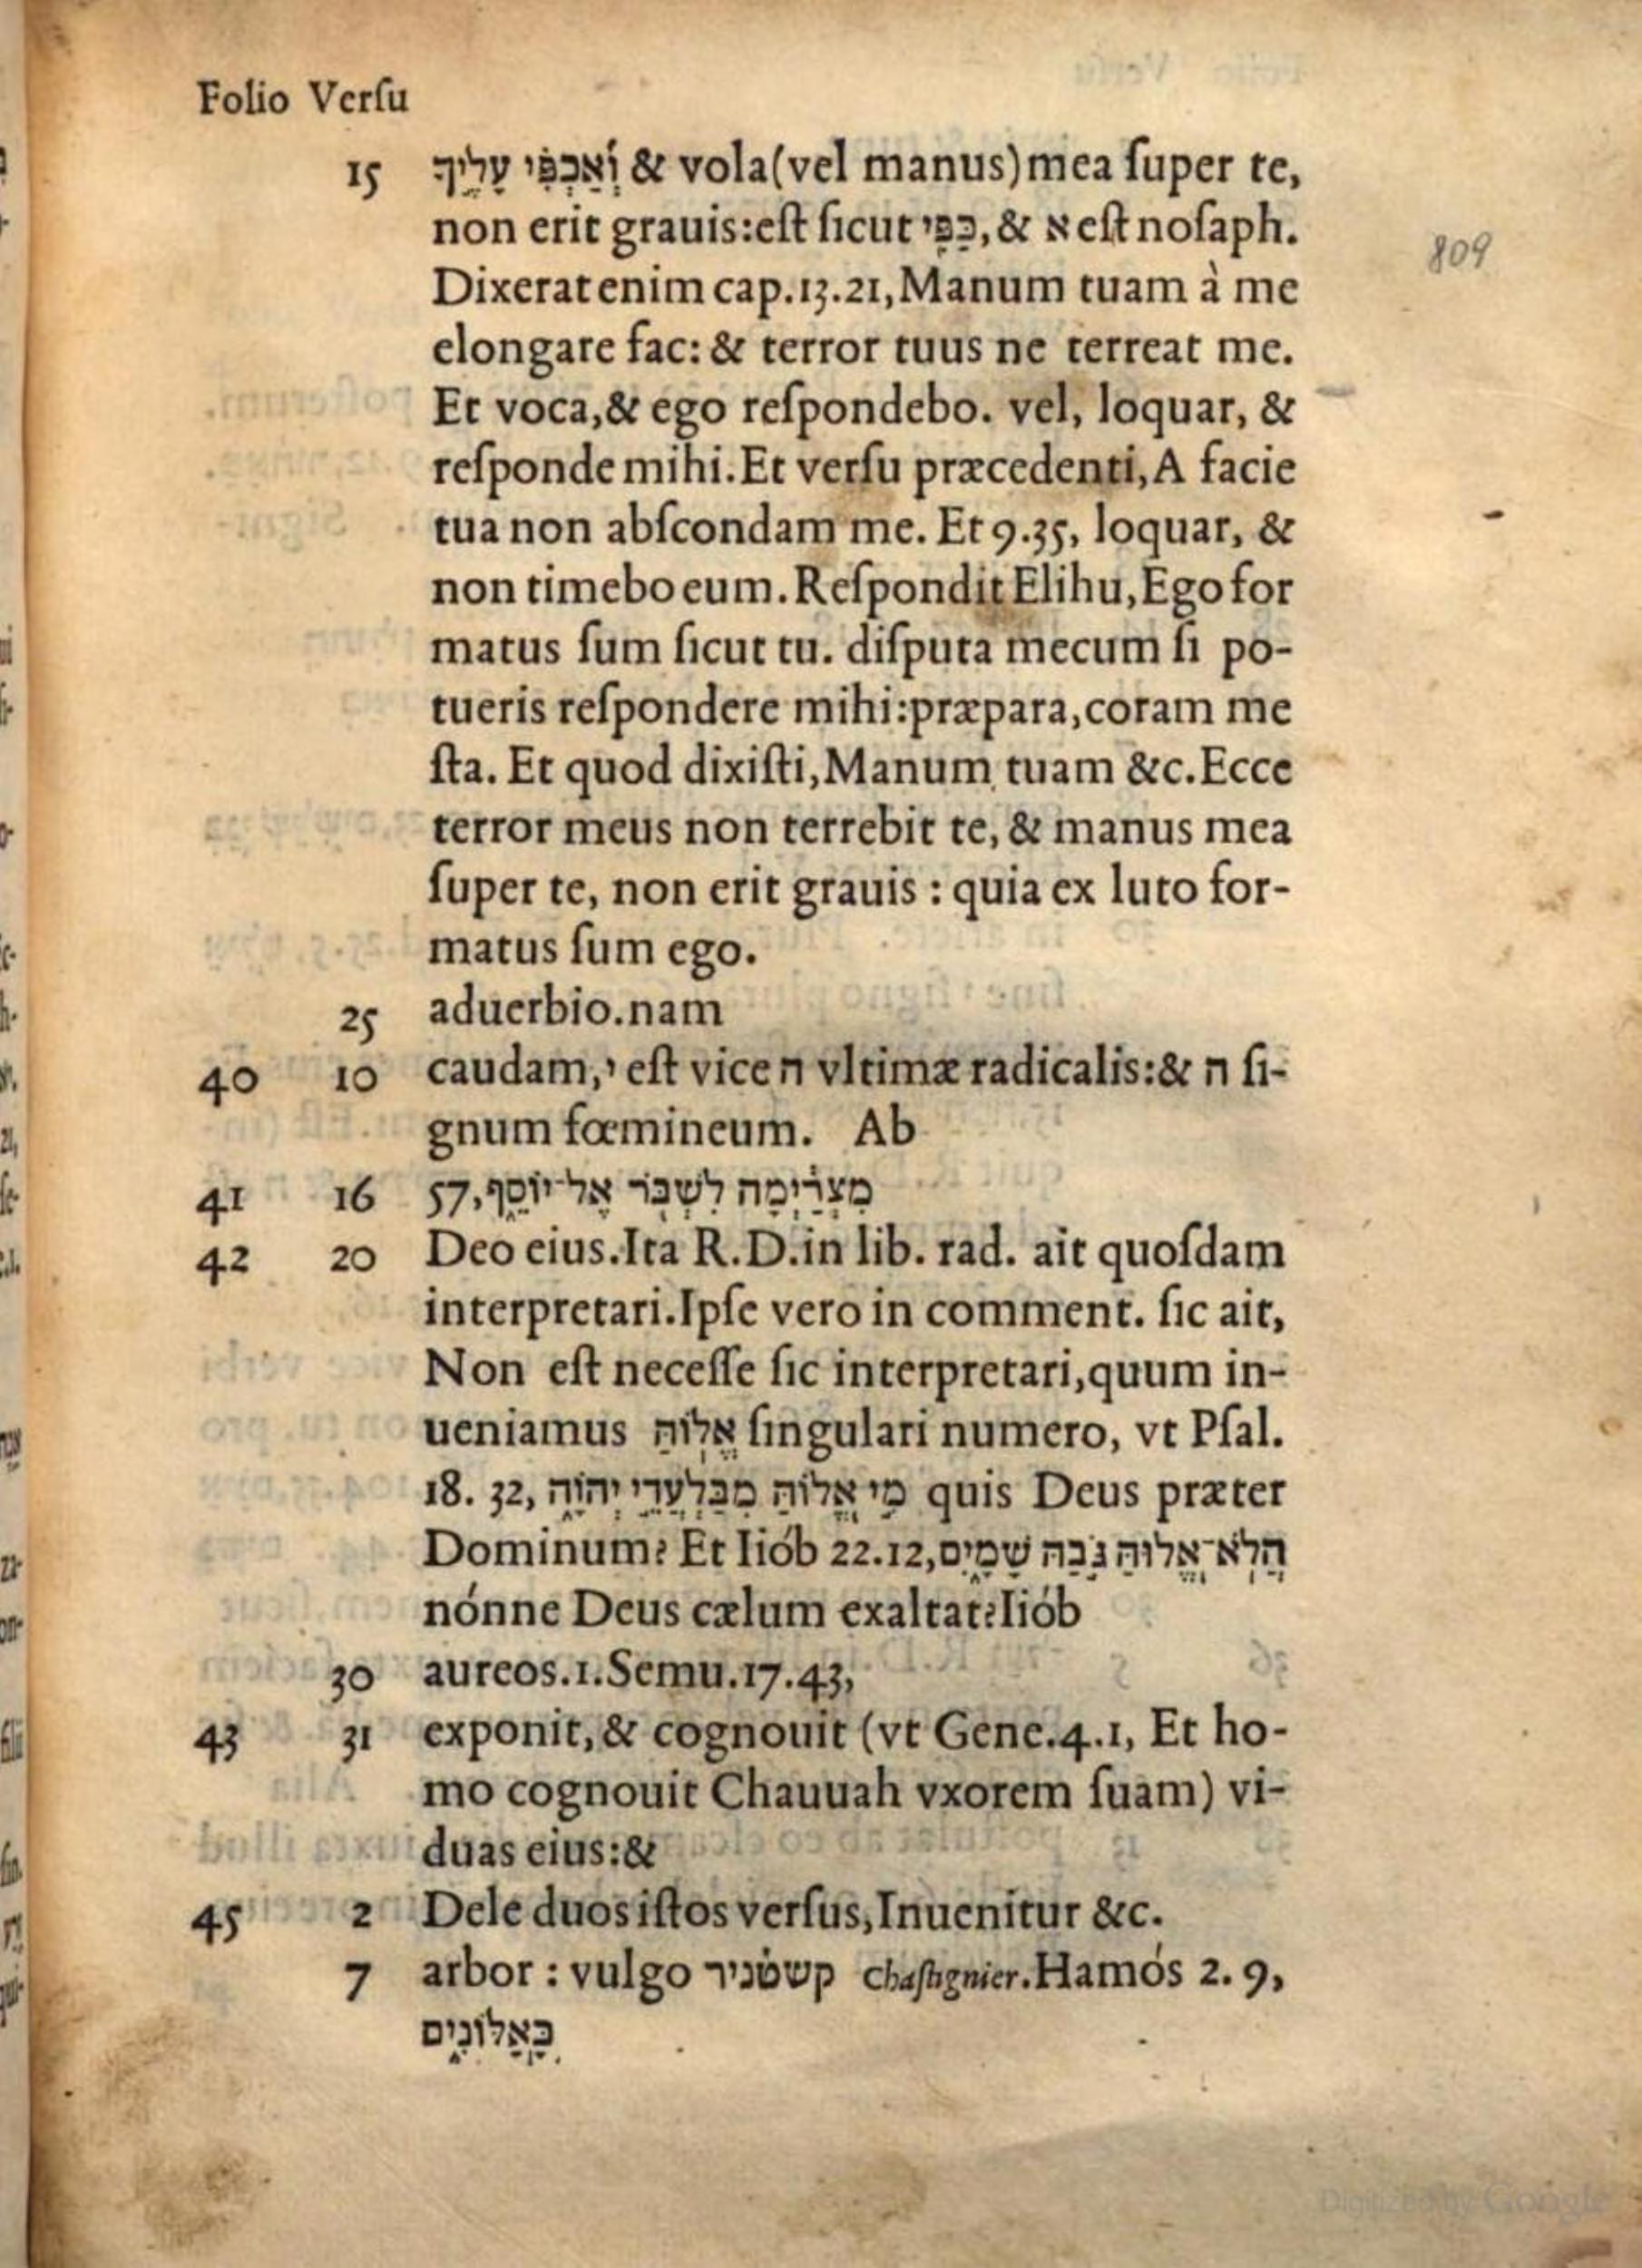 Folio Verſu
15 וְאַכְפִּי עָלֶיךָ & vola(vel manus)mea ſuper te,
non erit grauis:eſt ſicut כַּפִּי, & א eſt noſaph.
809
Dixerat enim cap.13.21, Manum tuam à me
elongare fac: & terror tuus ne terreat me.
Et voca,& ego reſpondebo. vel, loquar, &
reſponde mihi. Et verſu præcedenti, A facie
tua non abſcondam me. Et 9.35, loquar, &
non timebo eum. Reſpondit Elihu, Ego for
matus ſum ſicut tu. diſputa mecum ſi po-
tueris reſpondere mihi:præpara, coram me
ſta. Et quod dixiſti, Manum tuam &c. Ecce
terror meus non terrebit te, & manus mea
ſuper te, non erit grauis : quia ex luto for-
matus ſum ego.
25 aduerbio. nam
40 10 caudam, י eſt vice ה vltimæ radicalis:& ה ſi-
gnum fœmineum. Ab
41 16 מִצְרַיְמָה לִשְׁבֹּר אֶל־יוֹסֵף, 57
42 20 Deo eius. Ita R. D. in lib. rad. ait quoſdam
interpretari. Ipſe vero in comment. ſic ait,
Non eſt neceſſe ſic interpretari, quum in-
ueniamus אֱלוֹהַּ ſingulari numero, vt Pſal.
18. 32, מִי אֱלוֹהַּ מִבַּלְעֲדֵי יְהוָֹה quis Deus præter
Dominum? Et Iiób 22.12, הֲלֹא־אֱלוֹהַּ גֹּבַהּ שָׁמָיִם
nónne Deus cælum exaltat? Iiób
30 aureos. 1. Semu. 17.43,
43 31 exponit, & cognouit (vt Gene. 4.1, Et ho-
mo cognouit Chauuah vxorem ſuam) vi-
duas eius:&
45 2 Dele duos iſtos verſus, Inuenitur &c.
7 arbor : vulgo קשטניר chaſtignier. Hamós 2. 9,
כָּאַלּוֹנִים
Digitized by Google